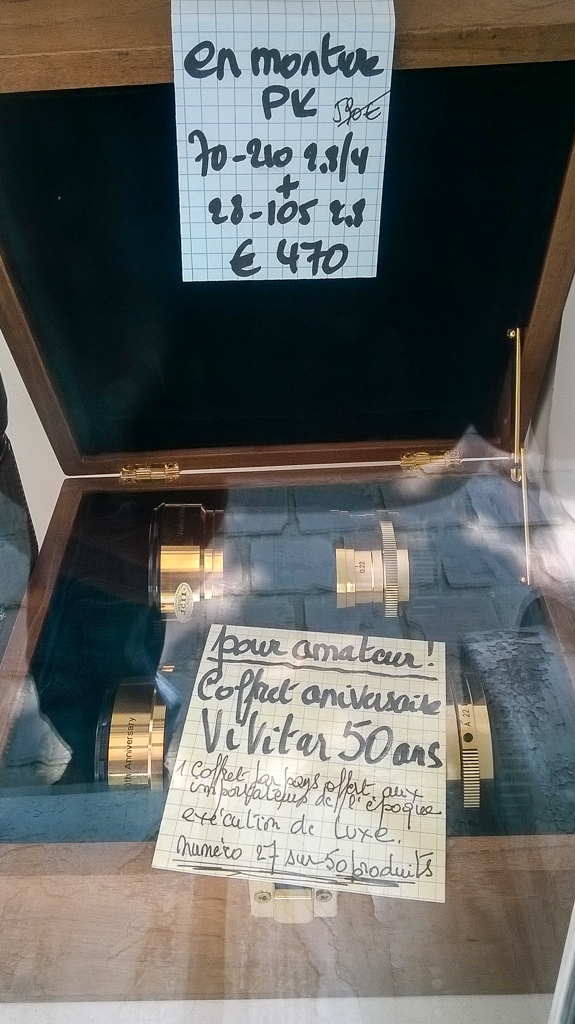 en monture
PK 590€
70-210 2.8/4
+
28-105 2.8
€ 470
JCII
0.22
pour amateur!
Coffret aniversaire
ViVitar 50 ans
1 Coffret par pays offert aux
importateurs de l'époque
exécution de luxe.
numéro 27 sur 50 produits
0th Anniversary
A 22